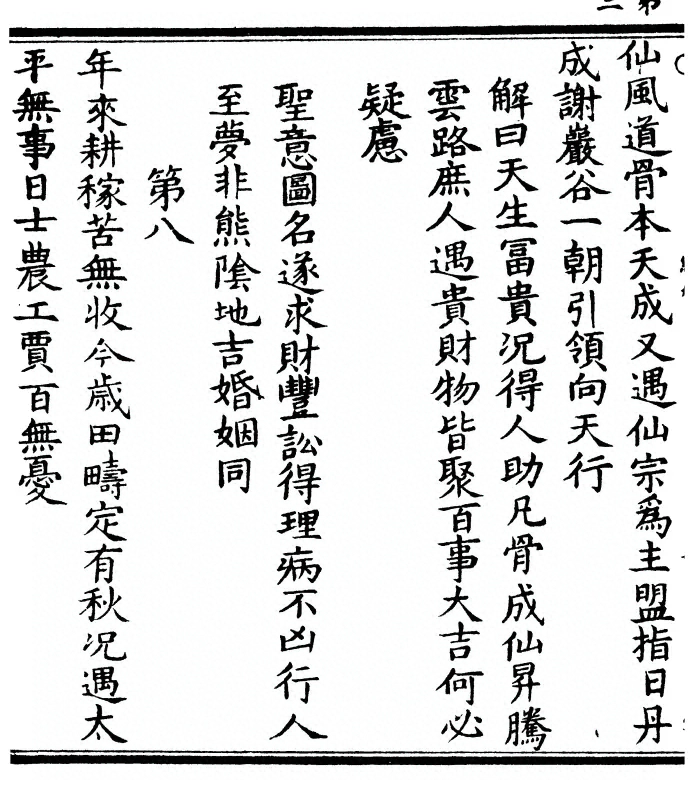 仙風道骨本天成又遇仙宗爲主盟指日丹
成謝巖谷一朝引領向天行
解曰天生冨貴况得人助凡骨成仙昇騰
雲路庶人遇貴財物皆聚百事大吉何必
疑慮
聖意圖名遂求財豐訟得理病不凶行人
至夢非熊隂地吉婚姻同
第八
年來耕稼苦無收今歳田疇定有秋况遇太
平無事日士農工賈百無憂